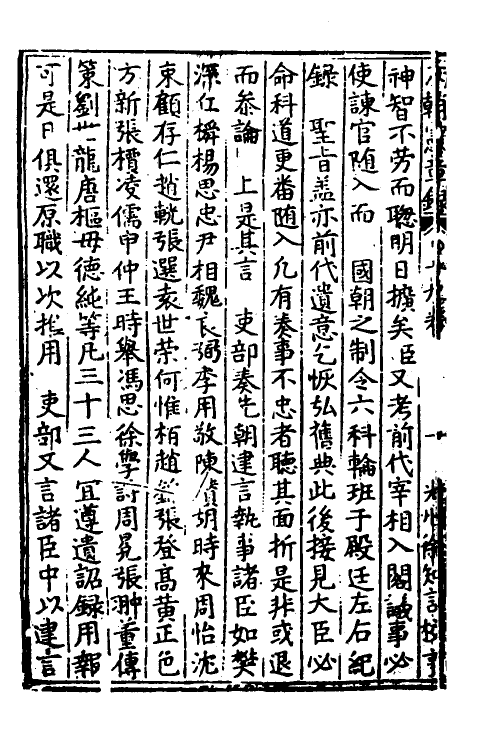 神智不劳而聦明日擴矣臣又考前代宰相入閣議事必
使諫官随入而　國朝之制令六科輪班于殿廷左右紀
録　聖旨盖亦前代遺意乞恢弘舊典此後接見大臣必
命科道更畨随入凢有奏事不忠者聽其面折是非或退
而叅論　上是其言　吏部奏先朝建言執事諸臣如樊
深仁樃楊思忠尹相魏良弼李用敬陳瓚胡時來周怡沈
束顧存仁趙軏張選袁世荣何惟栢趙張登髙黄正色
方新張檟凌儒申仲王時舉馮思徐學討周冕張翀董傳
策劉世龍唐樞毋德純等凡三十三人冝遵遺詔録用報
可是日俱還原職以次推用　吏部又言諸臣中以建言